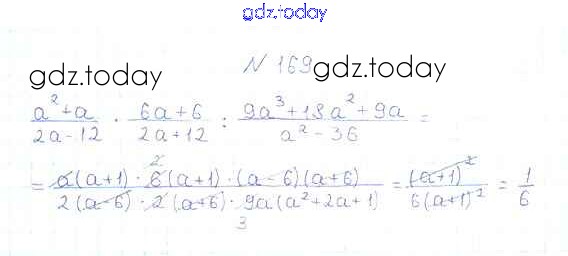 gdz.today
N 169
gdz.today gdz.today
(a²+a)/(2a-12) · (6a+6)/(2a+12) : (9a³+18a²+9a)/(a²-36) =
= (a(a+1) · 6(a+1) · (a-6)(a+6))/(2(a-6) · 2(a+6) · 9a(a²+2a+1)) = (a+1)²/(6(a+1)²) = 1/6
2
3